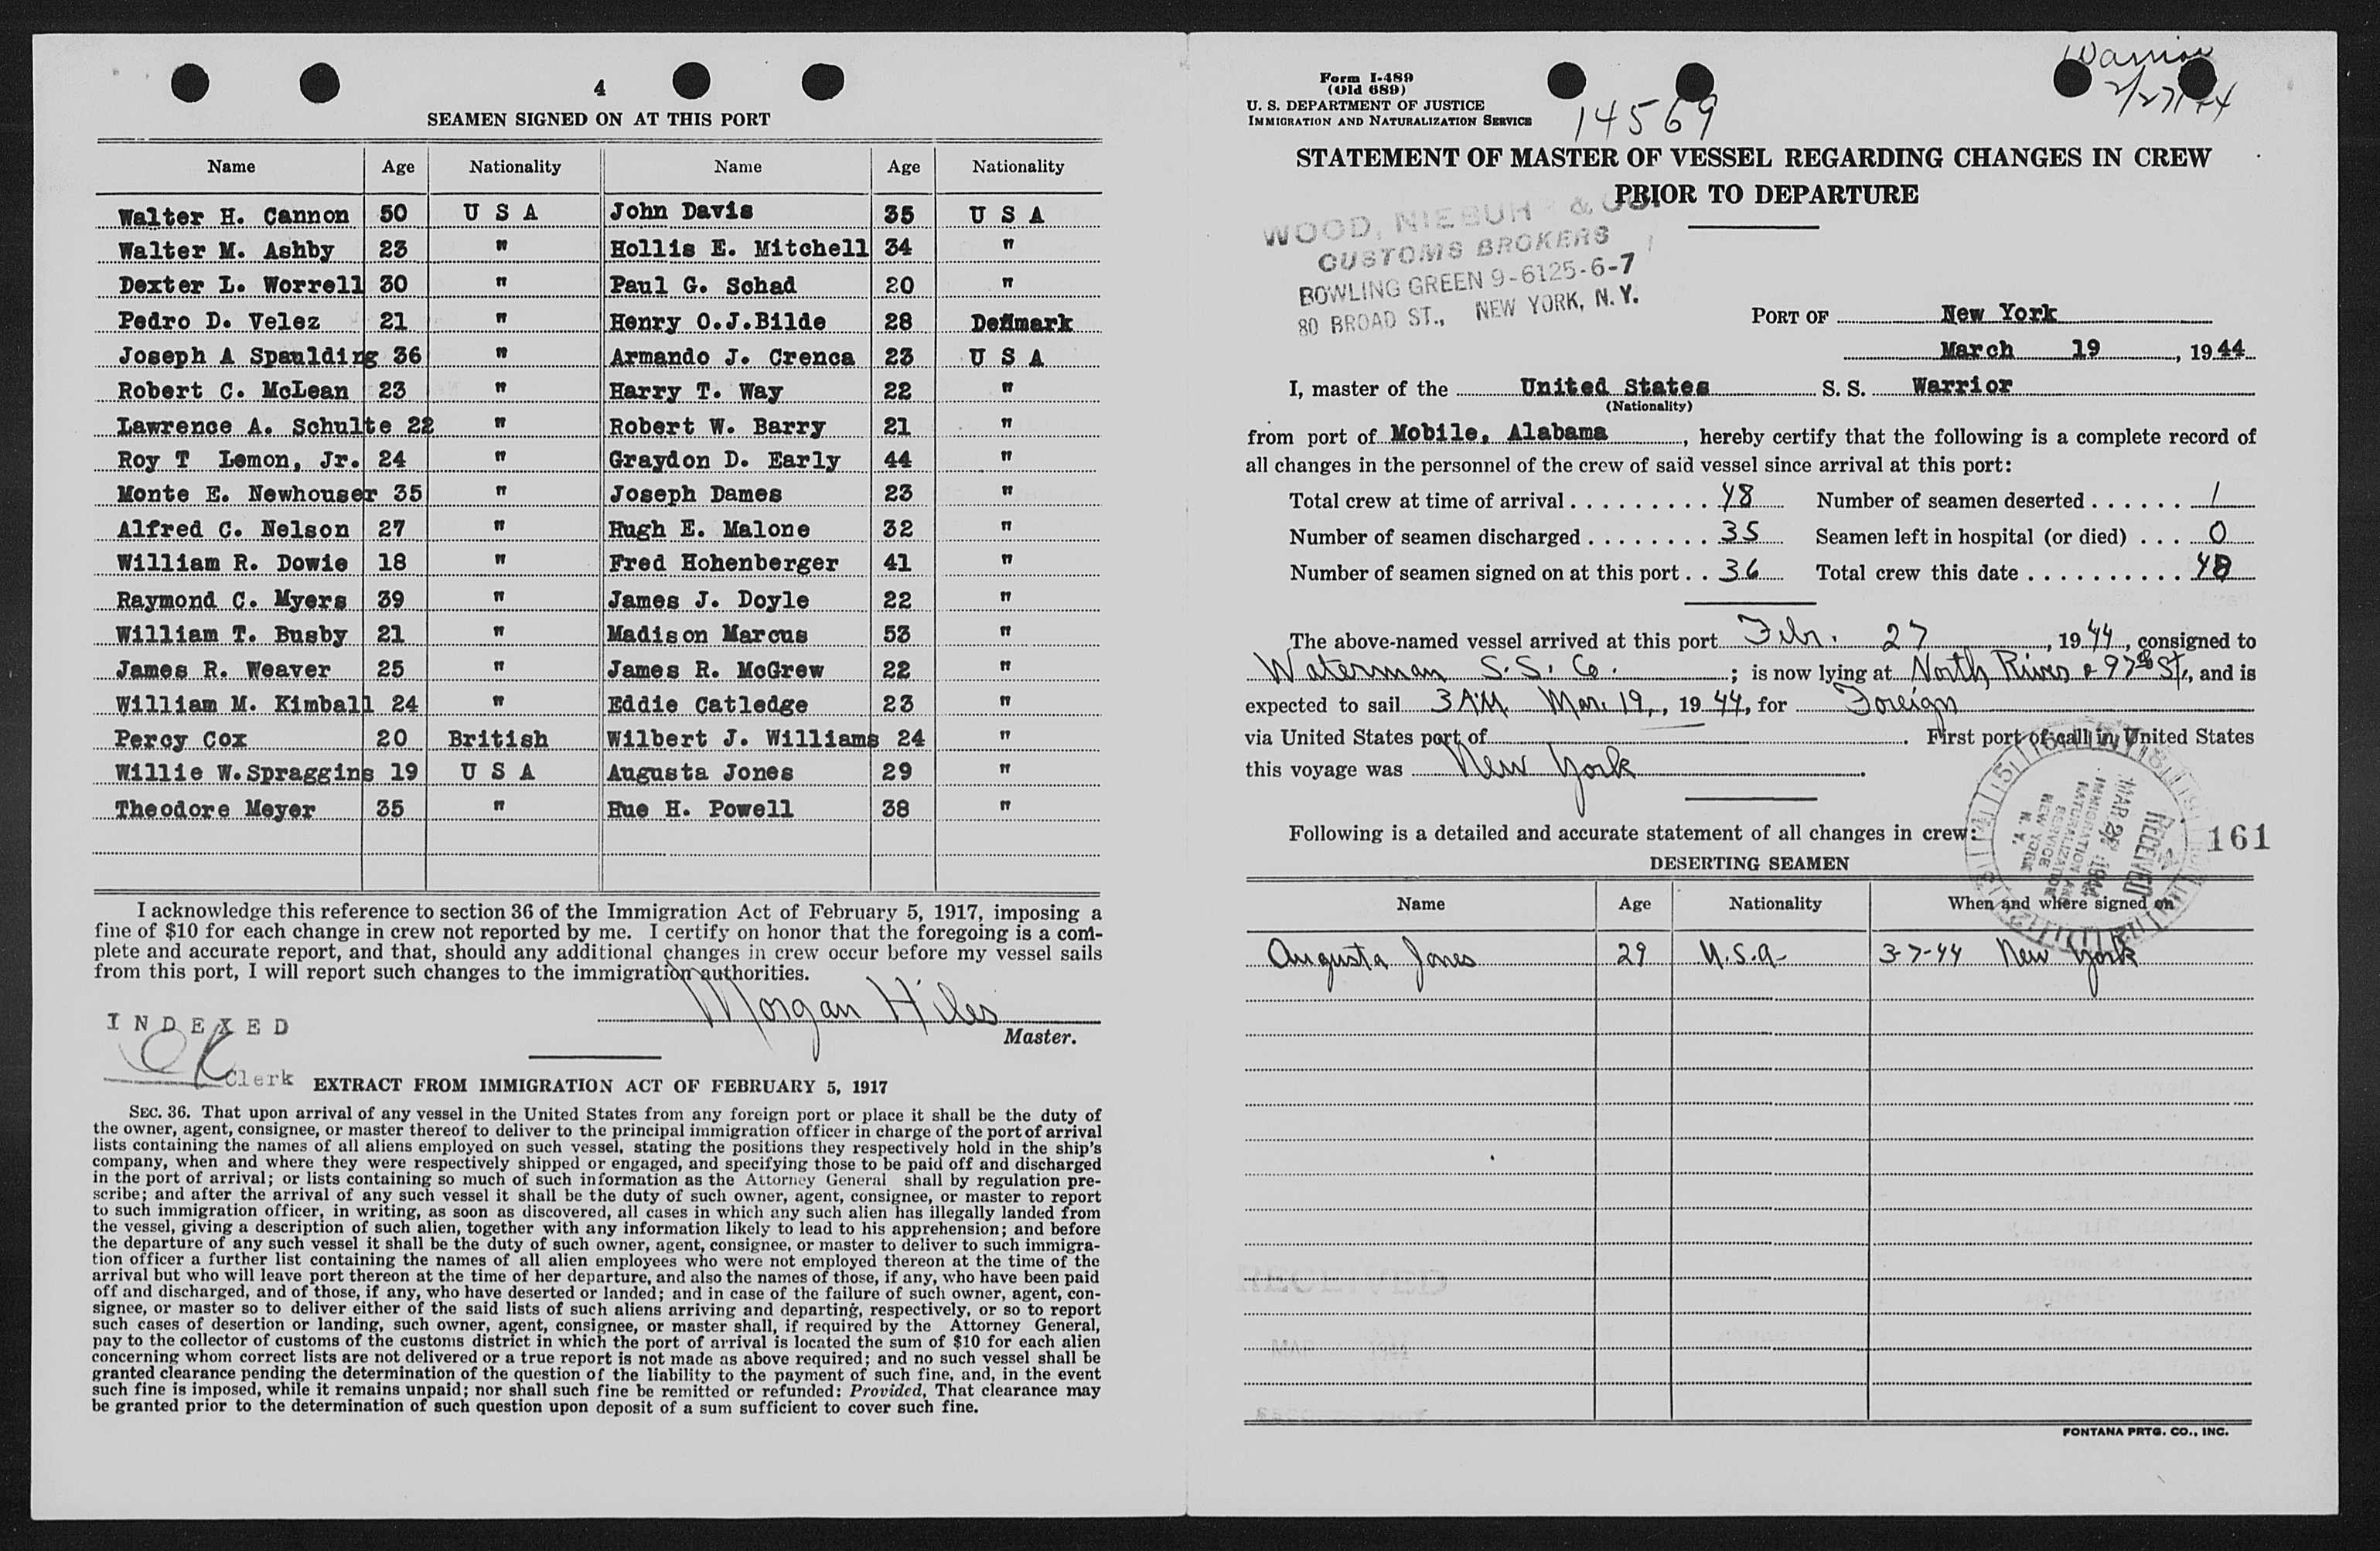 4
SEAMEN SIGNED ON AT THIS PORT
Name Age Nationality Name Age Nationality
Walter H. Cannon 50 U S A John Davis 35 U S A
Walter M. Ashby 23 " Hollis E. Mitchell 34 "
Dexter L. Worrell 30 " Paul G. Schad 20 "
Pedro D. Velez 21 " Henry O.J.Bilde 28 Denmark
Joseph A Spaulding 36 " Armando J. Crenca 23 U S A
Robert C. McLean 23 " Harry T. Way 22 "
Lawrence A. Schulte 22 " Robert W. Barry 21 "
Roy T Lemon, Jr. 24 " Graydon D. Early 44 "
Monte E. Newhouser 35 " Joseph Dames 23 "
Alfred C. Nelson 27 " Hugh E. Malone 32 "
William R. Dowie 18 " Fred Hohenberger 41 "
Raymond C. Myers 39 " James J. Doyle 22 "
William T. Busby 21 " Madison Marcus 53 "
James R. Weaver 25 " James R. McGrew 22 "
William M. Kimball 24 " Eddie Catledge 23 "
Percy Cox 20 British Wilbert J. Williams 24 "
Willie W.Spraggins 19 U S A Augusta Jones 29 "
Theodore Meyer 35 " Hue H. Powell 38 "
I acknowledge this reference to section 36 of the Immigration Act of February 5, 1917, imposing a
fine of $10 for each change in crew not reported by me. I certify on honor that the foregoing is a com-
plete and accurate report, and that, should any additional changes in crew occur before my vessel sails
from this port, I will report such changes to the immigration authorities.
Morgan Hiles
Master.
INDEXED
Clerk
EXTRACT FROM IMMIGRATION ACT OF FEBRUARY 5, 1917
SEC. 36. That upon arrival of any vessel in the United States from any foreign port or place it shall be the duty of
the owner, agent, consignee, or master thereof to deliver to the principal immigration officer in charge of the port of arrival
lists containing the names of all aliens employed on such vessel, stating the positions they respectively hold in the ship's
company, when and where they were respectively shipped or engaged, and specifying those to be paid off and discharged
in the port of arrival; or lists containing so much of such information as the Attorney General shall by regulation pre-
scribe; and after the arrival of any such vessel it shall be the duty of such owner, agent, consignee, or master to report
to such immigration officer, in writing, as soon as discovered, all cases in which any such alien has illegally landed from
the vessel, giving a description of such alien, together with any information likely to lead to his apprehension; and before
the departure of any such vessel it shall be the duty of such owner, agent, consignee, or master to deliver to such immigra-
tion officer a further list containing the names of all alien employees who were not employed thereon at the time of the
arrival but who will leave port thereon at the time of her departure, and also the names of those, if any, who have been paid
off and discharged, and of those, if any, who have deserted or landed; and in case of the failure of such owner, agent, con-
signee, or master so to deliver either of the said lists of such aliens arriving and departing, respectively, or so to report
such cases of desertion or landing, such owner, agent, consignee, or master shall, if required by the Attorney General,
pay to the collector of customs of the customs district in which the port of arrival is located the sum of $10 for each alien
concerning whom correct lists are not delivered or a true report is not made as above required; and no such vessel shall be
granted clearance pending the determination of the question of the liability to the payment of such fine, and, in the event
such fine is imposed, while it remains unpaid; nor shall such fine be remitted or refunded: Provided, That clearance may
be granted prior to the determination of such question upon deposit of a sum sufficient to cover such fine.
Warrior
2/27/44
Form I-489
(Old 689)
U. S. DEPARTMENT OF JUSTICE
IMMIGRATION AND NATURALIZATION SERVICE
14569
STATEMENT OF MASTER OF VESSEL REGARDING CHANGES IN CREW
PRIOR TO DEPARTURE
WOOD, NIEBUHR & CO.
CUSTOMS BROKERS
BOWLING GREEN 9-6125-6-7
80 BROAD ST., NEW YORK, N. Y.
PORT OF New York
March 19, 1944
I, master of the United States S. S. Warrior
(Nationality)
from port of Mobile, Alabama, hereby certify that the following is a complete record of
all changes in the personnel of the crew of said vessel since arrival at this port:
Total crew at time of arrival 48 Number of seamen deserted 1
Number of seamen discharged 35 Seamen left in hospital (or died) 0
Number of seamen signed on at this port 36 Total crew this date 48
The above-named vessel arrived at this port Febr. 27, 1944, consigned to
Waterman S.S. Co.; is now lying at North River & 97th St, and is
expected to sail 3 AM Mar. 19, 1944, for Foreign
via United States port of . First port of call in United States
this voyage was New York
RECEIVED
MAR 1944
IMMIGRATION AND
NATURALIZATION
SERVICE
NEW YORK
N. Y.
161
Following is a detailed and accurate statement of all changes in crew:
DESERTING SEAMEN
Name Age Nationality When and where signed on
Augusta Jones 29 U.S.A- 3-7-44 New York
FONTANA PRTG. CO., INC.